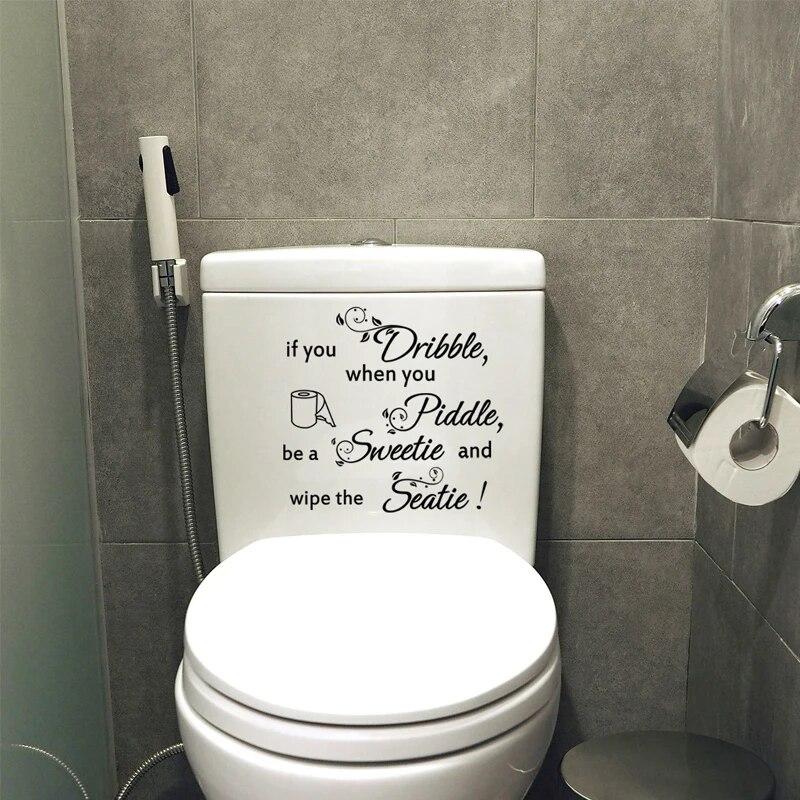 if you Dribble,
when you
Piddle,
be a Sweetie and
wipe the Seatie !